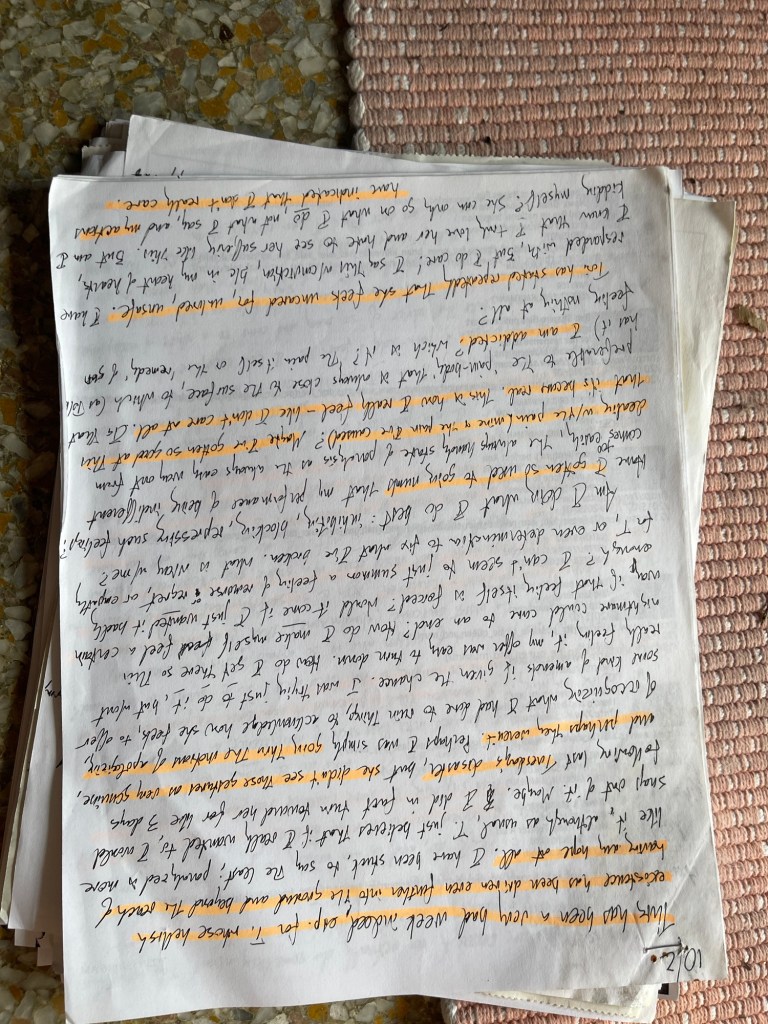 10/2
This has been a very bad week indeed, esp. for T. whose hellish
existence has been driven even further into the ground and beyond the reach of
having any hope at all. I have been stuck, to say the least; paralyzed is more
like it, although as usual, T. just believes that if I really wanted to, I would
snap out of it. Maybe. I did in fact turn toward her for like 3 days
following last Tuesday's disaster, but she didn't see those gestures as very genuine,
and perhaps they weren't. Perhaps I was simply going thru the motions of apologizing,
of recognizing what I had done to ruin things, to acknowledge how she feels, to offer
some kind of amends if given the chance. I was trying just to do it, but w/out
really feeling it, my offer was easy to turn down. How do I get there so this
nightmare could come to an end? How do I make myself feel a certain
way if that feeling itself is forced? Would it come if I just wanted it badly
enough? I can't seem to just summon a feeling of remorse or regret, or empathy
for T, or even determination to fix what I've broken. What is wrong w/me?
Am I doing what I do best: inhibiting, blocking, repressing such feelings?
Have I gotten so used to going numb that my performance of being indifferent
comes too easily, the always handy state of paralysis as the always easy way out from
dealing w/the pain (mine & the pain I've caused)? Maybe I've gotten so good at this
that it's become real. This is how I really feel – like I don't care at all. Is that
preferable to the 'pain-body' that is always close to the surface, to which (as Tolle
has it) I am addicted? Which is it? The pain itself or the 'remedy' of
feeling nothing at all?
Tina has stated repeatedly that she feels uncared for, unloved, unsafe. I have
responded with, But I do care! I say this w/conviction, b/c in my heart of hearts,
I know that I truly love her and hate to see her suffering like this. But am I
kidding myself? She can only go on what I do, not what I say, and my actions
have indicated that I don't really care.